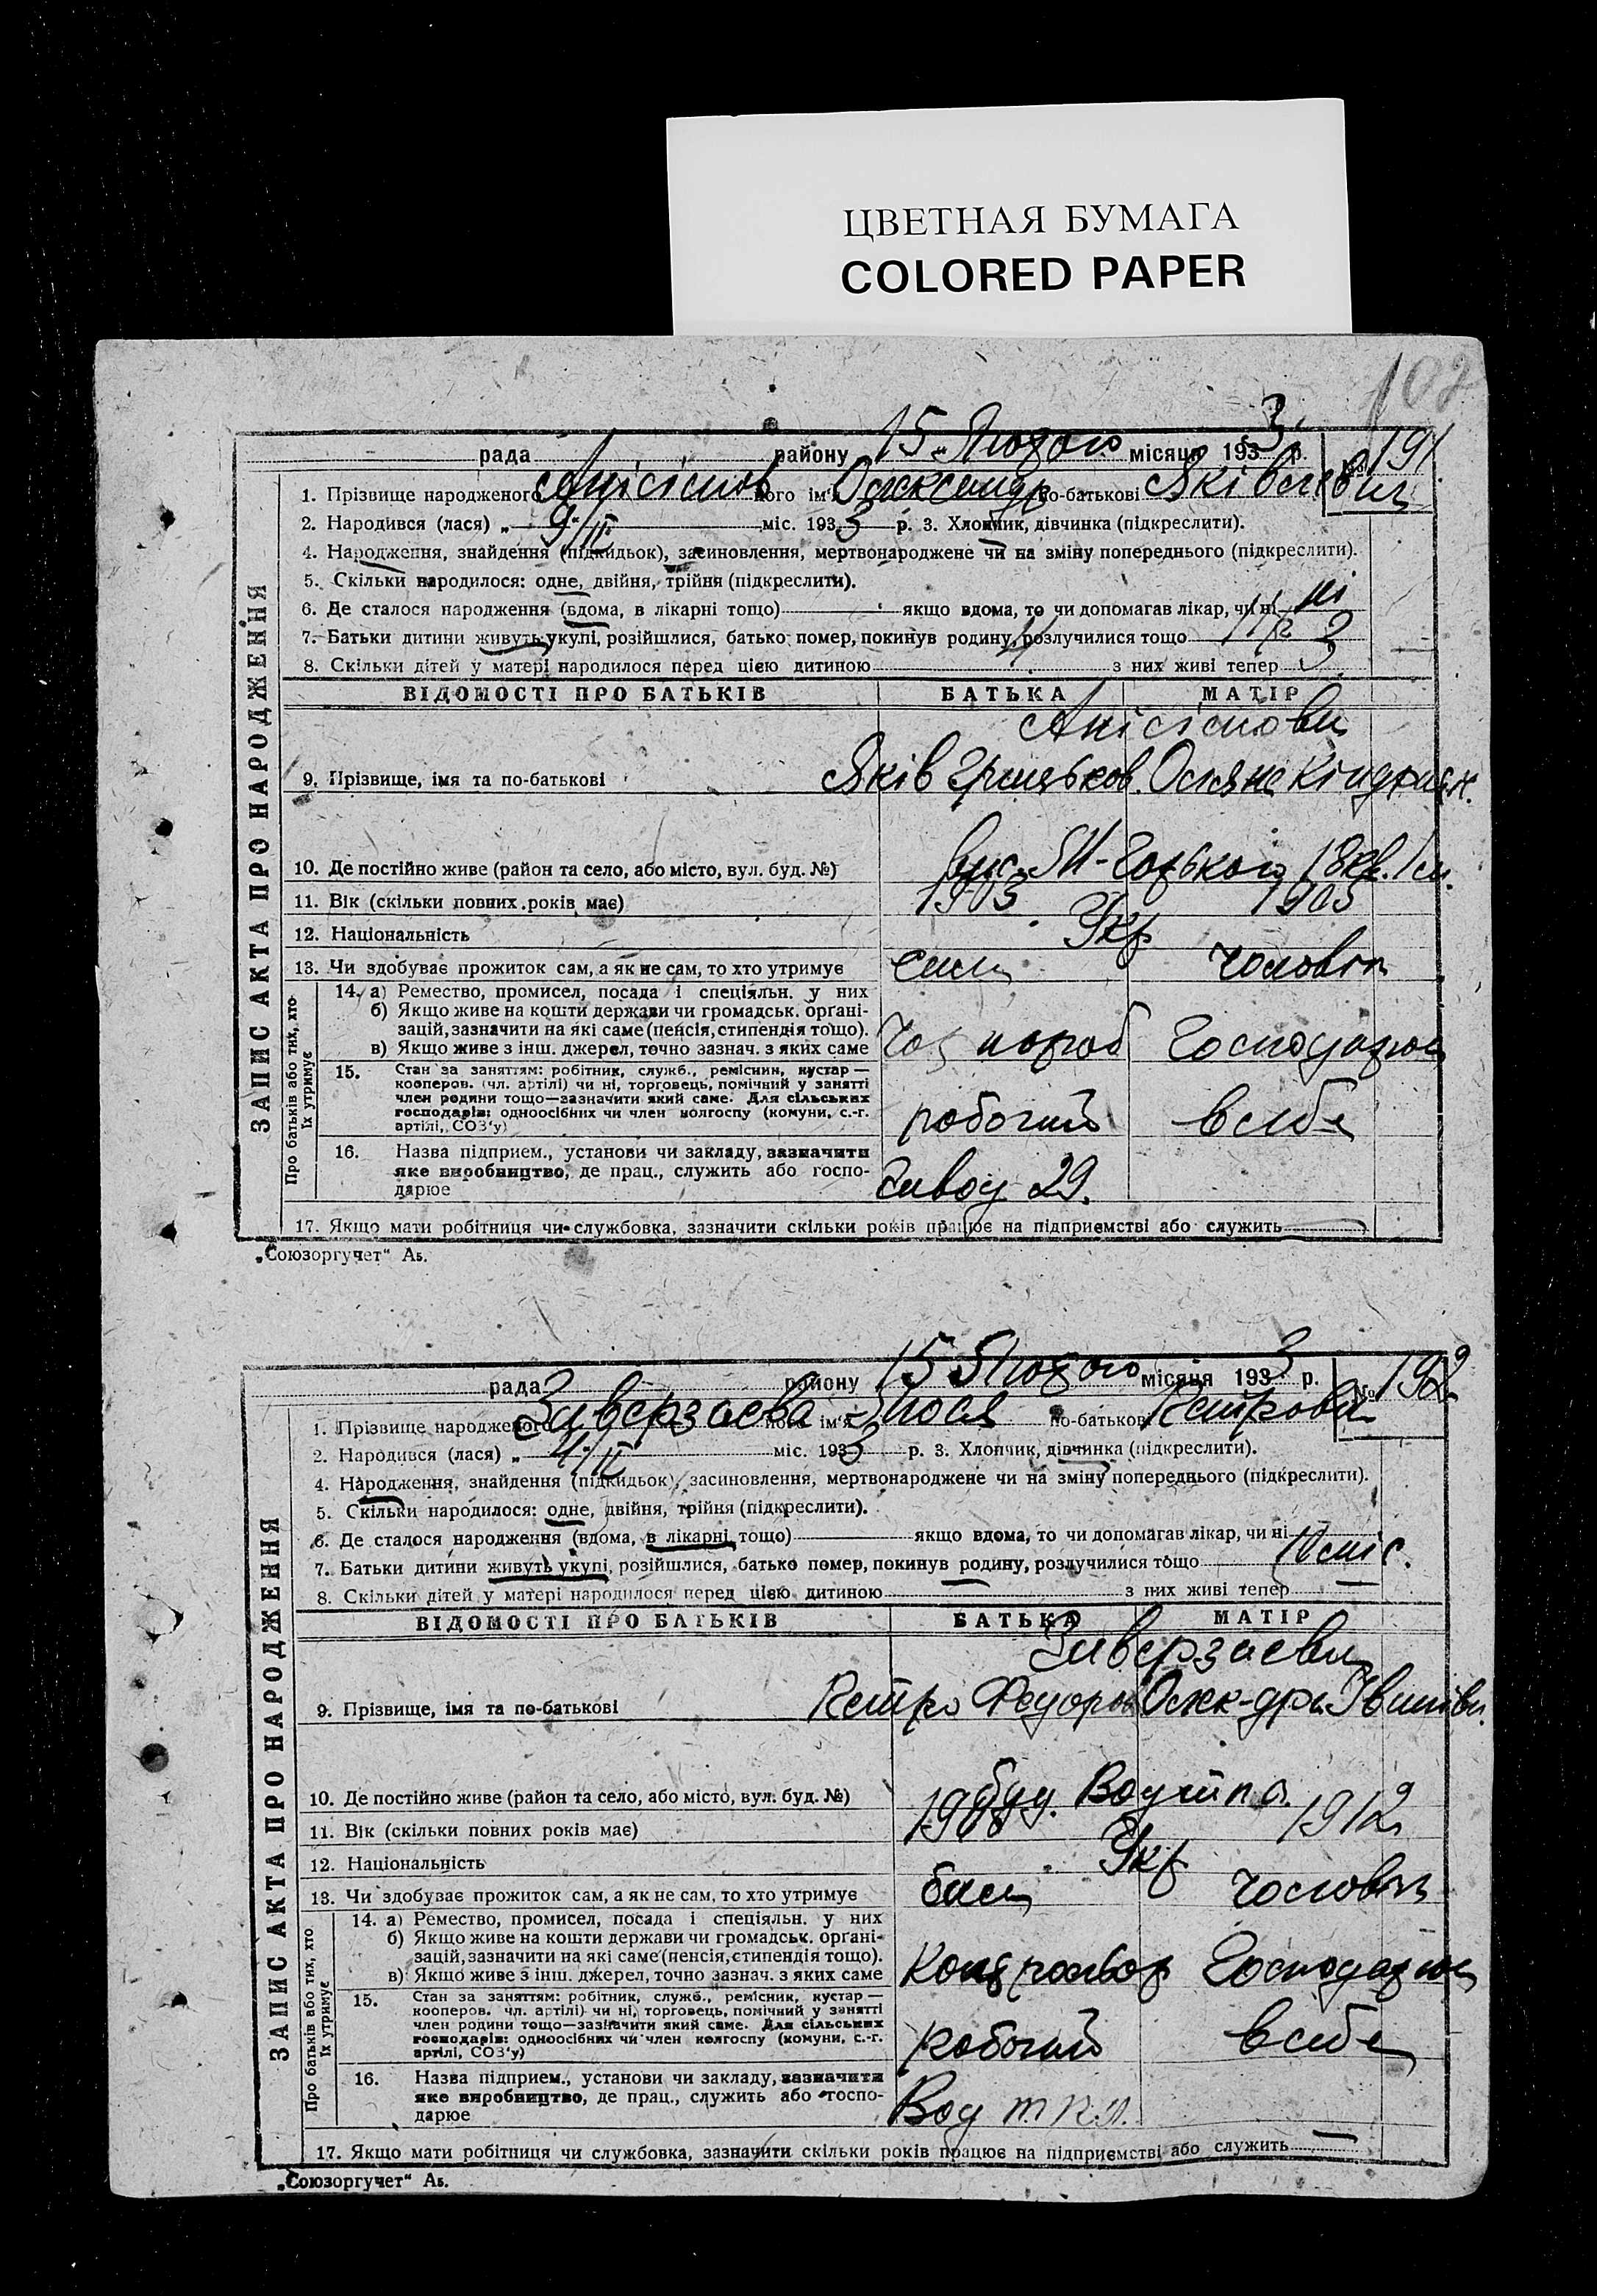 ЦВЕТНАЯ БУМАГА
COLORED PAPER
102
рада району 15 Лютого місяця 1933 р. № 191
1. Прізвище народженого Анісімов його ім'я Олександр по-батькові Яківлевич
2. Народився (лася) „ 9/II міс. 1933 р. 3. Хлопчик, дівчинка (підкреслити).
4. Народження, знайдення (підкидьок), засиновлення, мертвонароджене чи на зміну попереднього (підкреслити).
5. Скільки народилося: одне, двійня, трійня (підкреслити).
6. Де сталося народження (вдома, в лікарні тощо) якщо вдома, то чи допомагав лікар, чи ні ні
7. Батьки дитини живуть укупі, розійшлися, батько помер, покинув родину, розлучилися тощо
8. Скільки дітей у матері народилося перед цією дитиною 4 з них живі тепер 3
ВІДОМОСТІ ПРО БАТЬКІВ БАТЬКА МАТІР
Анісімови
9. Прізвище, імя та по-батькові Яків Грицьков. Оляна Кіндратн.
10. Де постійно живе (район та село, або місто, вул. буд. №) М-Горького 18кв.
11. Вік (скільки повних років має) 1903 1905
12. Національність Укр
13. Чи здобуває прожиток сам, а як не сам, то хто утримує сам чоловік
14. а) Ремество, промисел, посада і спеціяльн. у них
б) Якщо живе на кошти держави чи громадськ. органі-
зацій, зазначити на які саме (пенсія, стипендія тощо).
в) Якщо живе з інш. джерел, точно зазнач. з яких саме Чорнороб Господарює
15. Стан за заняттям: робітник, служб., ремісник, кустар —
кооперов. (чл. артілі) чи ні, торговець, помічний у занятті
член родини тощо—зазначити який саме. Для сільських
господарів: одноосібних чи член колгоспу (комуни, с.-г.
артілі, СОЗ'у) робочий в себе
16. Назва підприєм., установи чи закладу, зазначити
яке виробництво, де прац., служить або госпо-
дарює Завод 29.
17. Якщо мати робітниця чи службовка, зазначити скільки років працює на підприємстві або служить —
ЗАПИС АКТА ПРО НАРОДЖЕННЯ
Про батьків або тих, хто
їх утримує
„Союзоргучет“ Аб.
рада району 15 Лютого місяця 1933 р. № 192
1. Прізвище народженого Заверзаєва його ім'я Люся по-батькові Петровна
2. Народився (лася) „ 4/II міс. 1933 р. 3. Хлопчик, дівчинка (підкреслити).
4. Народження, знайдення (підкидьок), засиновлення, мертвонароджене чи на зміну попереднього (підкреслити).
5. Скільки народилося: одне, двійня, трійня (підкреслити).
6. Де сталося народження (вдома, в лікарні, тощо) якщо вдома, то чи допомагав лікар, чи ні
7. Батьки дитини живуть укупі, розійшлися, батько помер, покинув родину, розлучилися тощо 10 міс.
8. Скільки дітей у матері народилося перед цією дитиною — з них живі тепер —
ВІДОМОСТІ ПРО БАТЬКІВ БАТЬКА МАТІР
Заверзаєви
9. Прізвище, імя та по-батькові Петро Федоров Олек-дра Іванівн.
10. Де постійно живе (район та село, або місто, вул. буд. №) буд.
11. Вік (скільки повних років має) 1908 1912
12. Національність Укр
13. Чи здобуває прожиток сам, а як не сам, то хто утримує сам чоловік
14. а) Ремество, промисел, посада і спеціяльн. у них
б) Якщо живе на кошти держави чи громадськ. органі-
зацій, зазначити на які саме (пенсія, стипендія тощо).
в) Якщо живе з інш. джерел, точно зазнач. з яких саме Господарює
15. Стан за заняттям: робітник, служб., ремісник, кустар —
кооперов. чл. артілі) чи ні, торговець, помічний у занятті
член родини тощо—зазначити який саме. Для сільських
господарів: одноосібних чи член колгоспу (комуни, с.-г.
артілі, СОЗ'у) робочий в себе
16. Назва підприєм., установи чи закладу, зазначити
яке виробництво, де прац., служить або госпо-
дарює Вод
17. Якщо мати робітниця чи службовка, зазначити скільки років працює на підприємстві або служить —
ЗАПИС АКТА ПРО НАРОДЖЕННЯ
Про батьків або тих, хто
їх утримує
„Союзоргучет“ Аб.